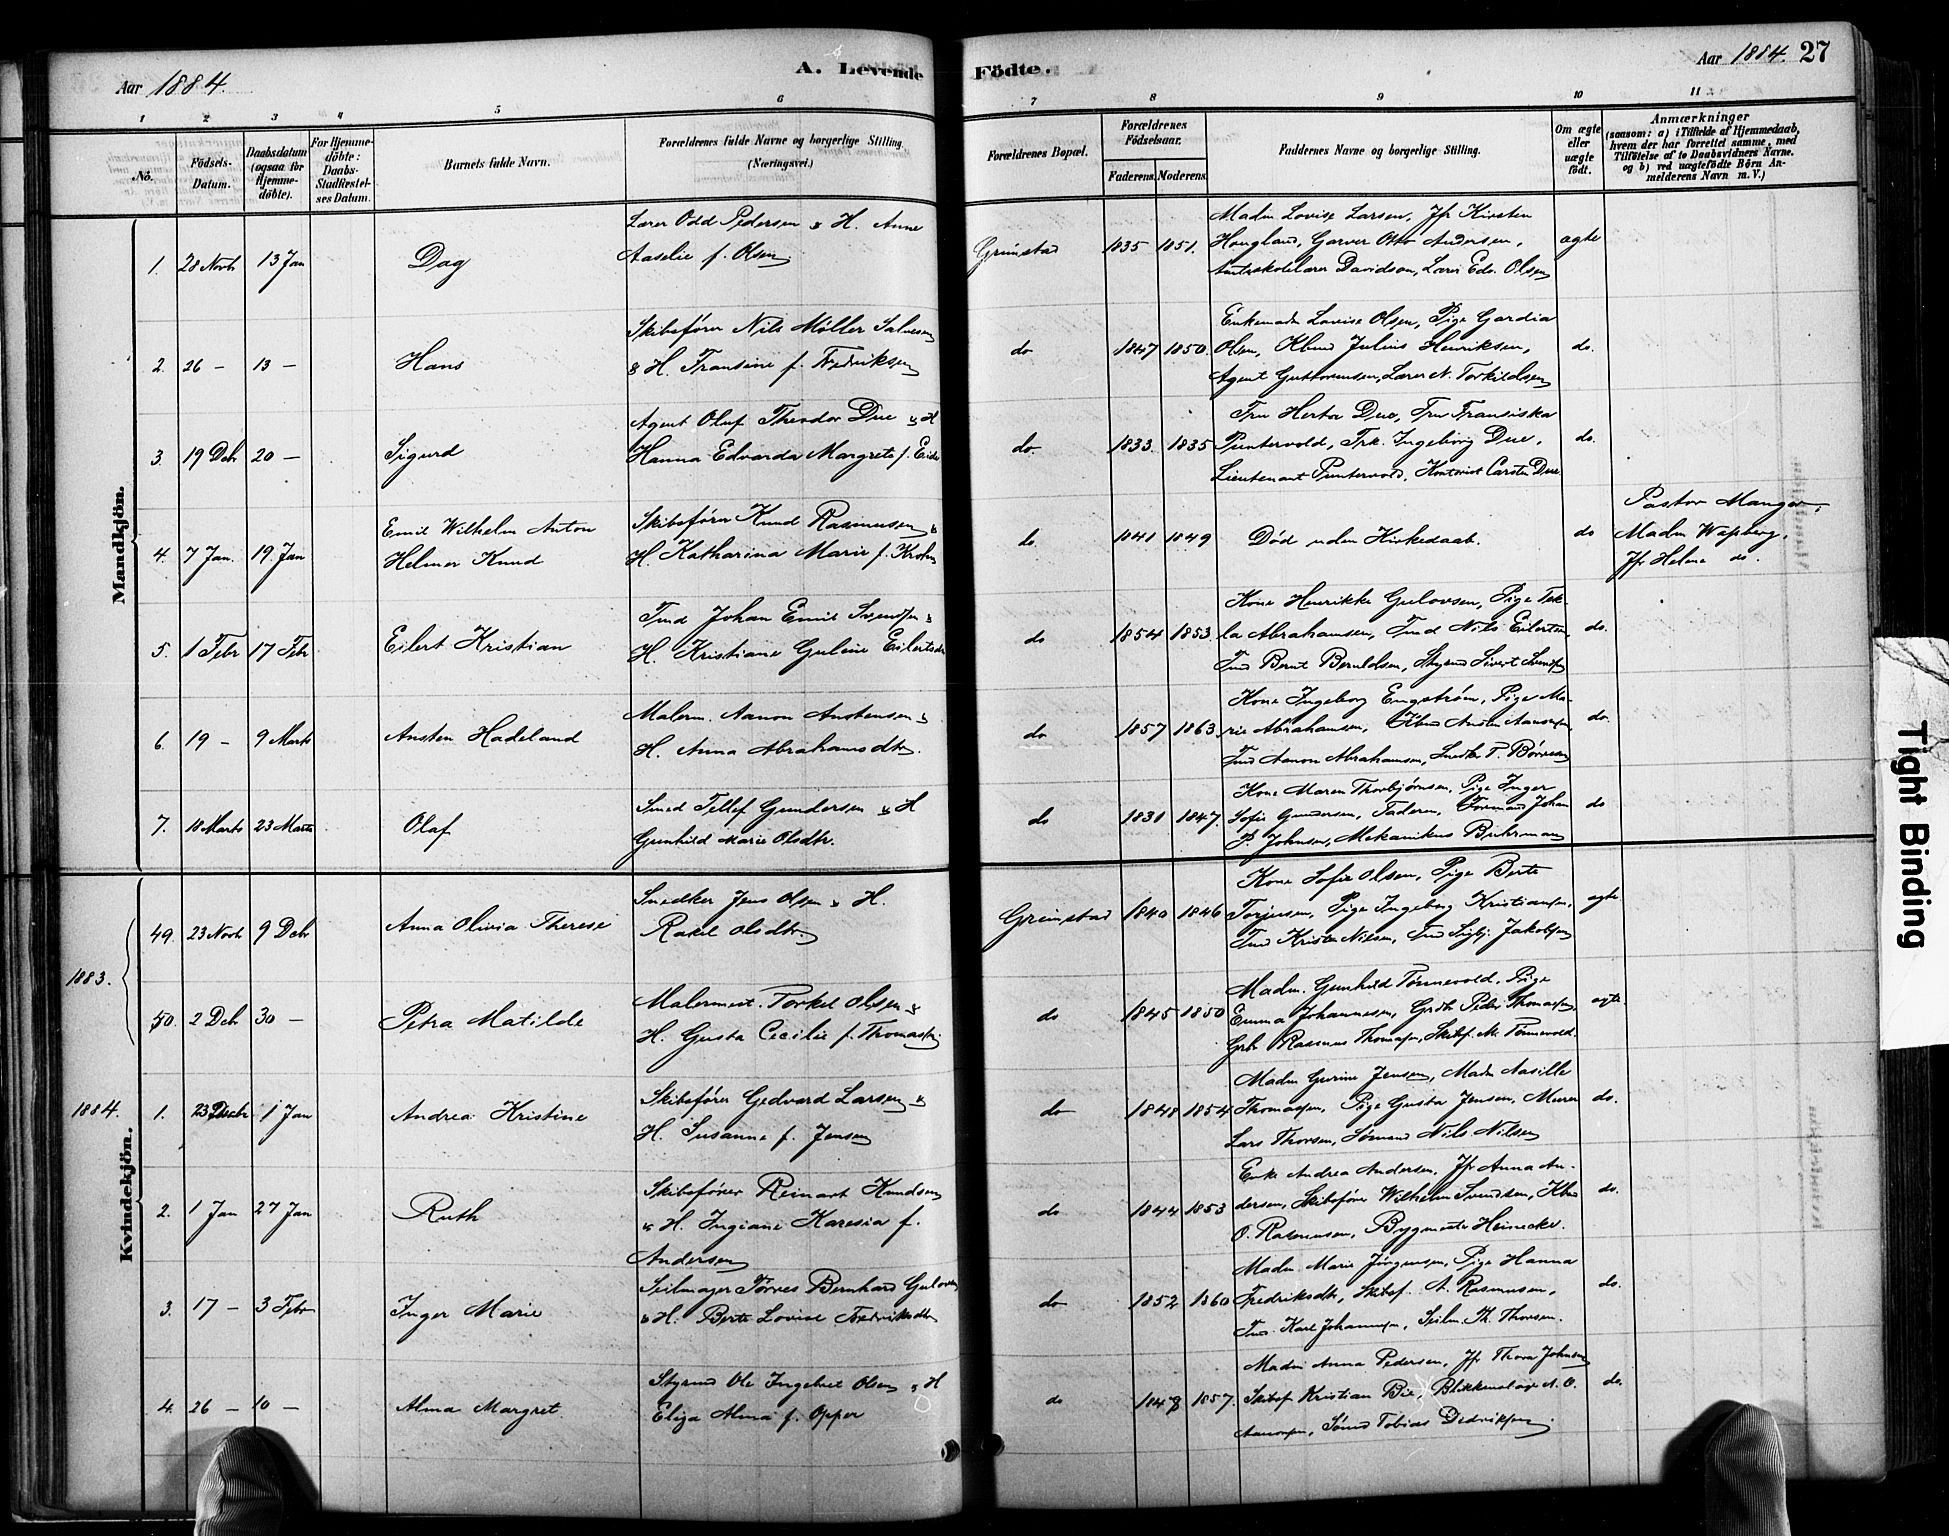 Aar 1884.
A. Levende
1 2 3 4 5 6
No.
Födsels-Datum.
Daabsdatum (ogsaa for Hjemmedöbte).
For Hjemmedöbte: Daabs-Stadfæstelses Datum.
Barnets fulde Navn.
Forældrenes fulde Navne og borgerlige Stilling.
(Næringsvei.)
Mandkjön.
Lærer Odd Pedersen & H. Anne
1. 28 Novb 13 Jan Dag Aaselie f. Olsen
Skibsfører Nils Møller Salvesen
2. 26 — 13 — Hans & H. Fransine f. Fredriksen
Agent Oluf Theodor Due & H
3. 19 Deb 20 — Sigurd Hanna Edvarda Margrete f. Eide
Emil Wilhelm Anton Skibsfører Knud Rasmussen &
4. 7 Jan. 19 Jan Helmer Knud H. Katharina Marie f. Krohn
Tmd Johan Emil Svendsen &
5. 1 Febr 17 Febr Eilert Kristian H. Kristiane Guline Eilertsdtr
Malerm. Aanon Austensen &
6. 19 — 9 Marts Austen Hadeland H. Anna Abrahamsdtr.
Smed Tellef Gundersen & H
7. 18 Marts 23 Marts Olaf Gunhild Marie Olsdtr.
Snedker Jens Olsen & H.
49. 23 Novb 9 Deb Anna Olivia Therese Rakel Olsdtr.
1883.
Malermest. Torkel Olsen &
50. 2 Deb 30 — Petra Matilde H. Gusta Cecilie f. Thomassen
Skibsfører Gedvard Larsen &
1884. 1. 23 Decbr 1 Jan Andrea Kristine H. Susanne f. Jensen
Kvindekjön.
Skibsfører Reinart Knudsen
2. 1 Jan 27 Jan Ruth & H. Ingiane Karesia f.
Andersen
Seilmager Tørres Bernhard Gulovsen
3. 17 — 3 Febr Inger Marie & H. Berte Lovise Fredriksdtr
Styrmd Ole Ingebret Olsen & H
4. 26 — 10 — Alma Margret. Eliza Alma f. Opper
Födte.
Aar 1884. 27
7 8 9 10 11
Forældrenes Bopæl.
Forældrenes Födselsaar.
Faderens. Moderens.
Faddernes Navne og borgerlige Stilling.
Om ægte eller uægte födt.
Anmærkninger
(saasom: a) i Tilfælde af Hjemmedaab, hvem der har forrettet samme, med Tilföielse af to Daabsvidners Navne. og b) ved uægtefödte Börn Anmelderens Navn m. V.)
Madm Lovise Larsen, Jfr Kirsten
Grimstad 1835 1851. Haugland, Garver Otto Andersen, ægte
Amtsskolelærer Davidson, Lærer Edv. Olsen
Enkemadm Lovise Olsen, Pige Gardia
do 1847 1850. Olsen, Kbmd Julius Henriksen, do.
Agent Guttormsen, Lærer N. Torkildsen
Fru Herta Due, Fru Fransiska
do 1833. 1835 Puntervold, Frk. Ingeborg Due, do.
Lieutenant Puntervold, Kontorist Carsten Due
Pastor Manger,
do. 1841 1849 Død uden Kirkedaab. do Madm Wapberg,
Jfr Helene do.
Kone Henrikke Gulovsen, Pige Tek-
do 1854 1853. la Abrahamsen, Tmd Nils Eilertsen, do.
Tmd Bernt Beruldsen, Styrmd Sivert Svendsen
Kone Ingeborg Engstrøm, Pige Ma-
do 1857 1863 rie Abrahamsen, Kbmd Austen Aanonsen, do.
Tmd Aanon Abrahamsen, Snedker T. Børresen
Kone Maren Thorbjørnsen, Pige Inger
do 1831 1847. Sofie Gundersen, Faderen, Formand Johan do
P. Johnsen, Mekanikus Buhrmann
Kone Sofie Olsen, Pige Berte
Grimstad 1840 1846 Torjusen, Pige Ingeborg Kristiansen, ægte
Tmd Krister Nilsen, Tmd Sigbj. Jakobsen
Madm. Gunhild Tønnevold, Pige
do 1845 1850 Emma Johannesen, Grdbr Peder Thomassen, ægte.
Grb. Rasmus Thomassen, Skibsf. M. Tønnevold.
Madm Gurine Jensen, Madm Aasille
do 1848 1854 Thomassen, Pige Gusta Jensen, Murer do.
Lars Thorsen, Sømand Nils Nilsen
Enke Andrea Andersen, Jfr Anna An-
do 1844 1853 dersen, Skibsfører Wilhelm Svendsen, Kbmd do.
O. Rasmussen, Bygmester Heinecke.
Madm. Marie Jørgensen, Pige Hanna
do 1852 1860 Fredriksdtr, Skibsf. A. Rasmussen, do.
Tmd. Karl Johannesen, Seilm. Th. Thorsen.
Madm Anna Pedersen, Jfr Thora Johnsen
do 1848 1857. Skibsf Kristian Bie, Blikkenslager A. O. do.
Aanonsen, Sømd Tobias Dedriksen.
Tight Binding